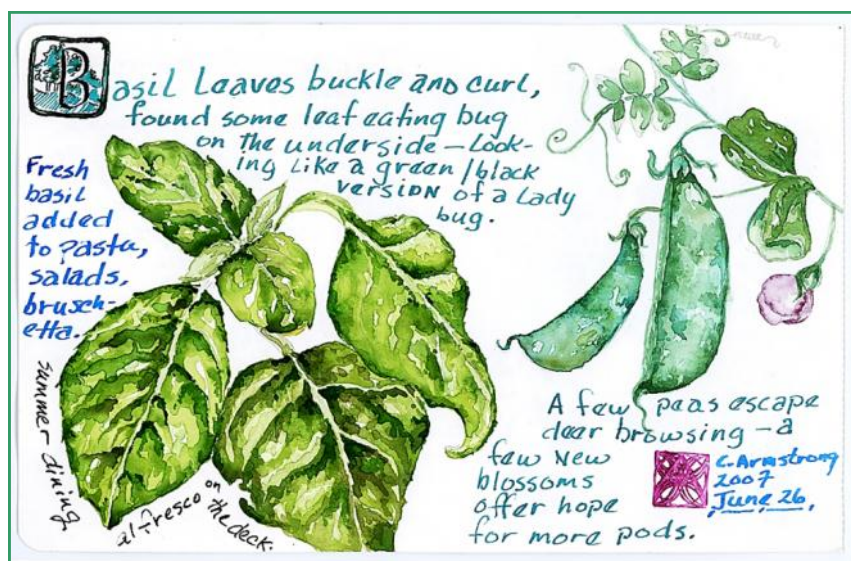 Basil Leaves buckle and curl,
found some leaf eating bug
on the underside — Look-
ing Like a green/black
version of a Lady
bug.
Fresh
basil
added
to pasta,
salads,
brusch-
etta.
summer dining
al fresco on the deck.
A few peas escape
deer browsing — a
few New
blossoms
offer hope
for more pods.
C. Armstrong
2007
June 26,